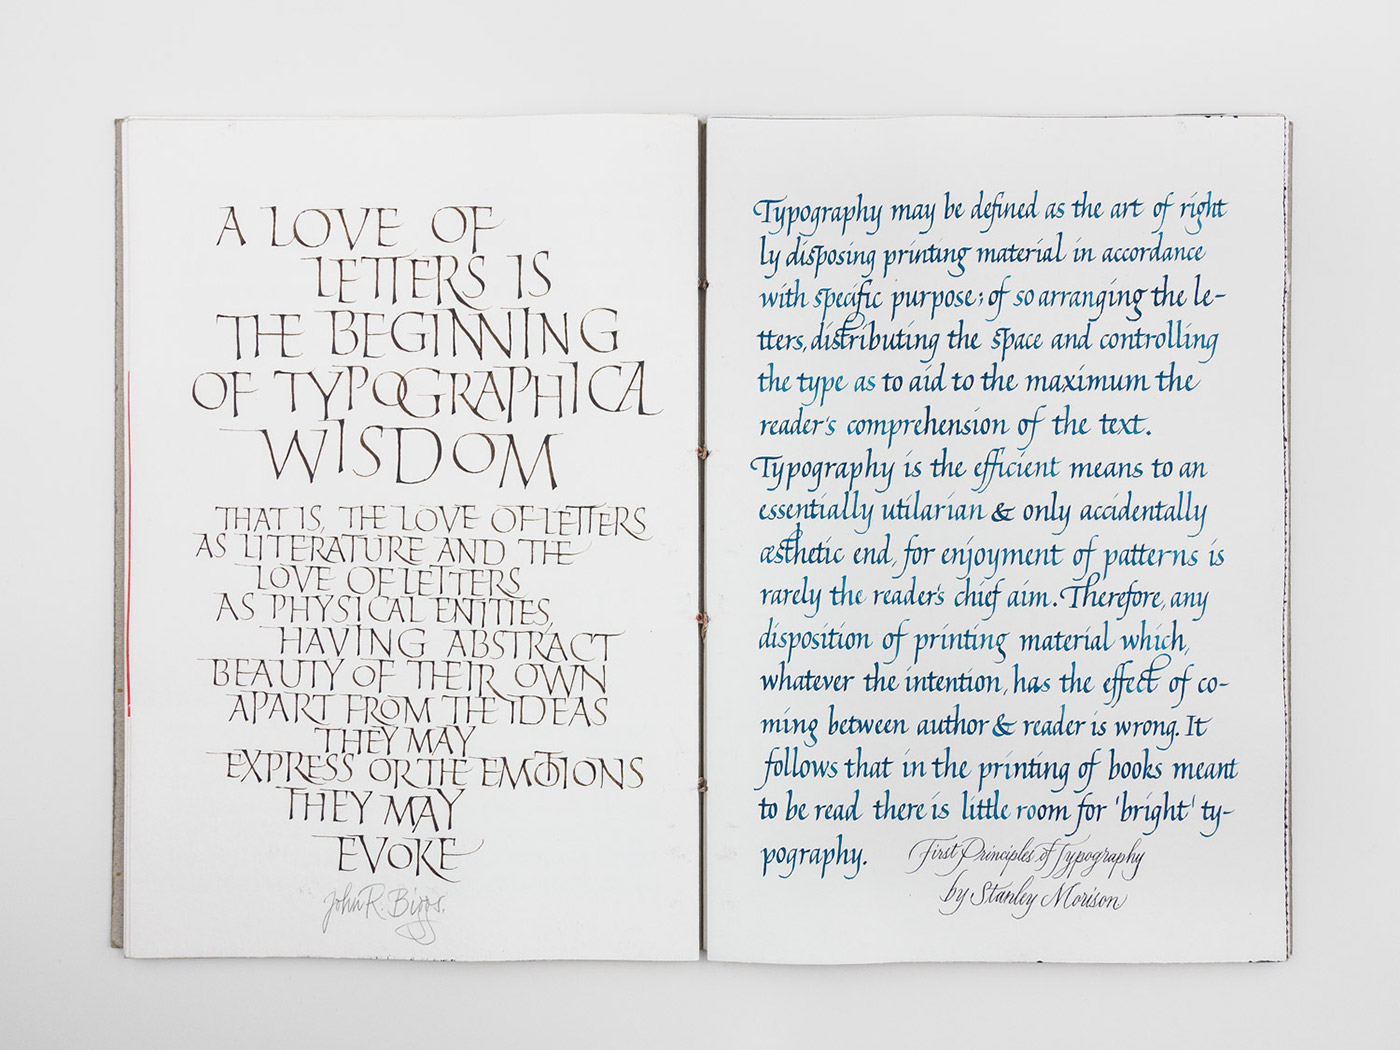 A LOVE OF
LETTERS IS
THE BEGINNING
OF TYPOGRAPHICAL
WISDOM
THAT IS, THE LOVE OF LETTERS
AS LITERATURE AND THE
LOVE OF LETTERS
AS PHYSICAL ENTITIES,
HAVING ABSTRACT
BEAUTY OF THEIR OWN
APART FROM THE IDEAS
THEY MAY
EXPRESS OR THE EMOTIONS
THEY MAY
EVOKE
John R. Biggs.
Typography may be defined as the art of right
ly disposing printing material in accordance
with specific purpose; of so arranging the le-
tters, distributing the space and controlling
the type as to aid to the maximum the
reader's comprehension of the text.
Typography is the efficient means to an
essentially utilarian & only accidentally
æsthetic end, for enjoyment of patterns is
rarely the reader's chief aim. Therefore, any
disposition of printing material which,
whatever the intention, has the effect of co-
ming between author & reader is wrong. It
follows that in the printing of books meant
to be read there is little room for 'bright' ty-
pography.
First Principles of Typography
by Stanley Morison